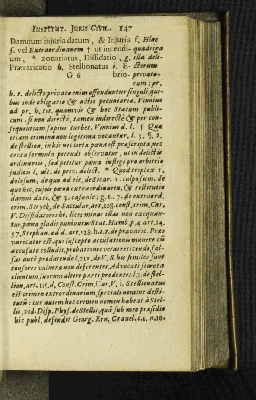 INSTITUT. JURIS CIVIL. 147
Damnum injuria datum, & Injuria f. Hæc
f. vel Extraordinariæ † ut incendi- quadriga
um, * Diffidatio, g. illa deli-
Prævaricatio h. Stellionatus i. & ctorum
G 6 brio- privato-
rum; pr.
h. t. delicto privatæ enim offenduntur singuli, qui-
bus inde obligatio & actio pecuniaria. Vinnius
ad pr. h. tit. quamvis & hoc Statum publi-
cum, si non directò, tamen indirectè & per con-
sequentiam sapius turbet. Vinnius d. l. † Quæ
etiam crimina non legitima vocantur, l. 3. §. 2.
de stellion. inkis nec certa pæna est præscripta nec
certa formula petendi observatur, ut in delictis
ordinariis, sed petitur pæna infligi pro arbitrio
judicis l. ult. de priv. delict. * Quod triplex 1.
dolosum, de quo ad tit. de Sicar. 2. culposum, de
quo hic, cujus pæna extraordinaria, & restitutio
damni dati, & 3. casuale; g. t. 7. de extraord.
crim. Stryck. de Saccular. art. 228. const. crim. Car.
V. Diffidatores hc. licet minas illas non exequan-
tur, pæna gladii puniuntur Stat. Hamb. p. 4. art. 24.
57. Stephan. ad d. art. 128. h. t. §. de præconis. Præ-
varicator est qui suscepto accusationis munere cū
accusato colludit, probationes veras reticendo, fal-
sas autē producendo l. 212. de V. S. hic similes sunt
tensores vulnera non deferentes, Advocati secreta
clientum suorum alteri parti prodentes l. 2. de stel-
lion, art. 115. d. Const. Crim. Car. V. i. Stellionatus
est crimen extraordinarium, speciali nomine desti-
tutū: cur autem hoc crimen nomen habeat à Stel-
lio, vid. Disp. Phys. de Stellio, quā sub meo præsidio
hic publ. defendit Georg. Ern. Gravel. 64. n. 10.